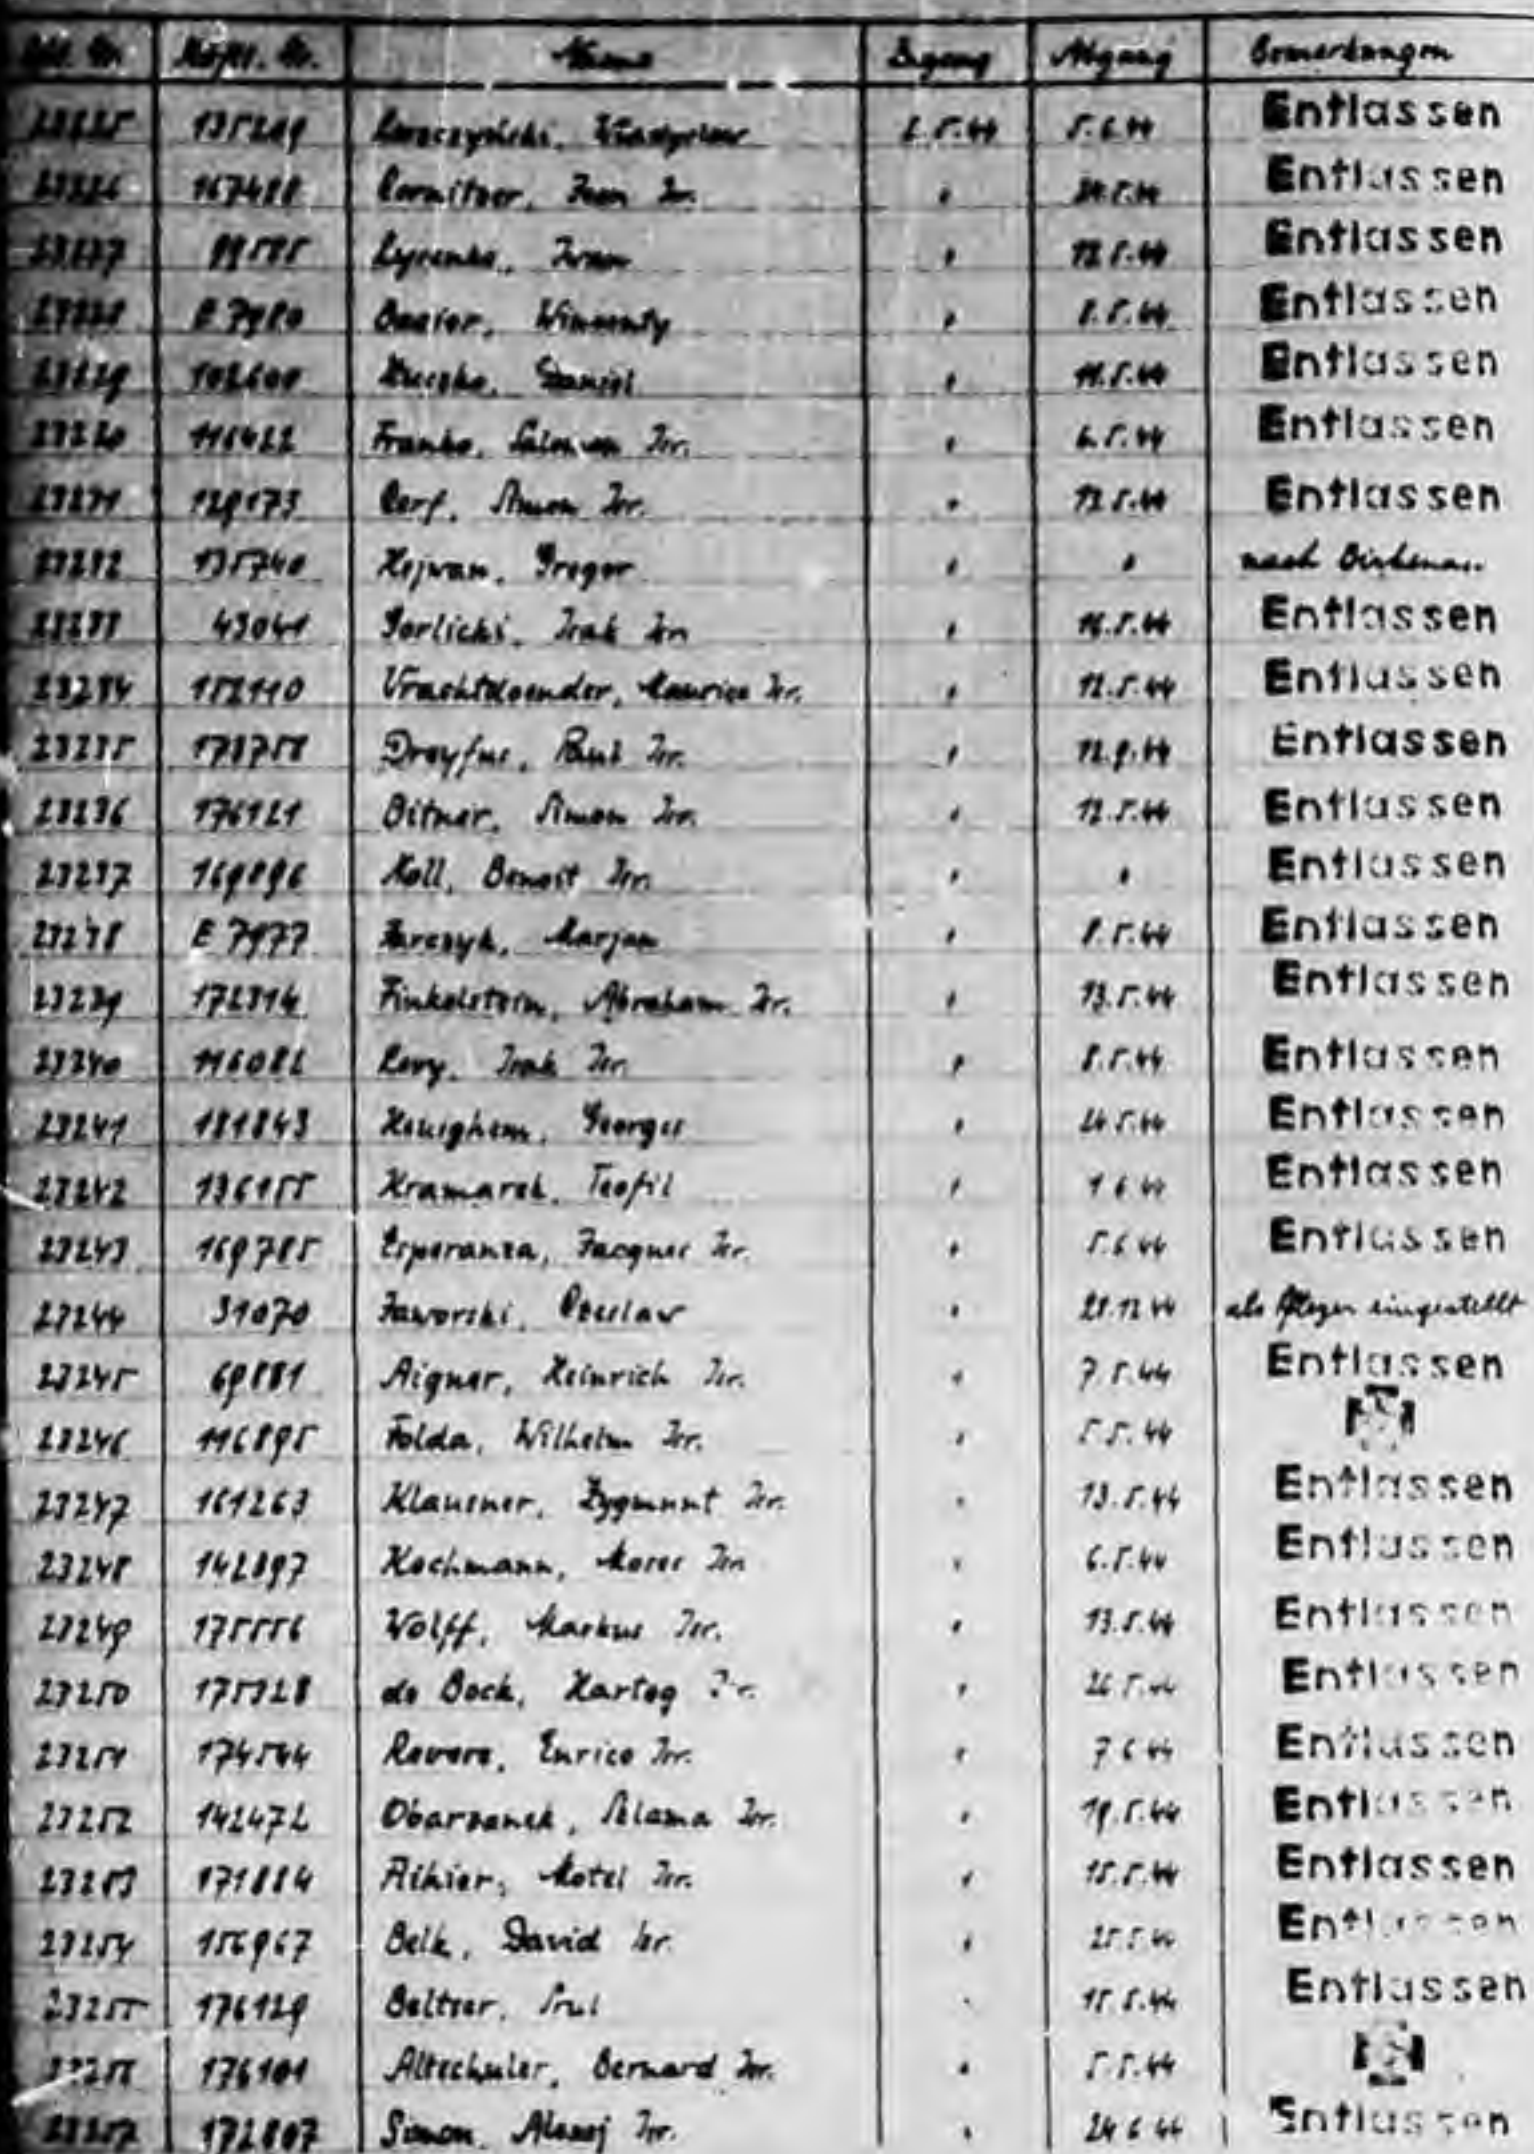 Name Zugang Abgang Bemerkungen
135219 5.6.44 Entlassen
167488 Cornitzer, Jean Isr. " Entlassen
Iwan " 12.5.44 Entlassen
E 7980 " 8.5.44 Entlassen
102600 Daniel " 11.5.44 Entlassen
23230 116422 Franko, Salomon Isr. " 6.5.44 Entlassen
23231 129173 Cerf, Simon Isr. " 12.5.44 Entlassen
23232 135740 Hejwan, Gregor " " nach Birkenau
23233 43041 Gorlicki, Izak Isr. " 16.5.44 Entlassen
23234 152110 Vrachtdoender, Maurice Isr. " 12.5.44 Entlassen
23235 173758 Dreyfus, Paul Isr. " 12.9.44 Entlassen
23236 176121 Bitner, Simon Isr. " 12.5.44 Entlassen
23237 169896 Koll, Benoit Isr. " " Entlassen
23238 E 7977 Jurczyk, Marjan " 8.5.44 Entlassen
23239 172314 Finkelstein, Abraham Isr. " 13.5.44 Entlassen
23240 116082 Levy, Izak Isr. " 8.5.44 Entlassen
23241 181843 Georges " 24.5.44 Entlassen
23242 136155 Kramarek, Teofil " 1.6.44 Entlassen
23243 169785 Esperanza, Jacques Isr. " 5.6.44 Entlassen
23244 31070 Jaworski, Czeslaw " 28.12.44 als Pfleger eingestellt
23245 69881 Aigner, Heinrich Isr. " 7.5.44 Entlassen
23246 116895 Folda, Wilhelm Isr. " 5.5.44
23247 161263 Klausner, Zygmunt Isr. " 13.5.44 Entlassen
23248 142897 Kochmann, Moses Isr. " 6.5.44 Entlassen
23249 175556 Wolff, Markus Isr. " 13.5.44 Entlassen
23250 175328 de Bock, Hartog Isr. " 26.5.44 Entlassen
23251 174544 Revere, Enrico Isr. " 7.6.44 Entlassen
23252 142472 Obarzanek, Szlama Isr. " 19.5.44 Entlassen
23253 171884 Motel Isr. " 15.5.44 Entlassen
23254 156967 Belk, David Isr. " 25.5.44 Entlassen
23255 176129 Beltzer, Srul " 15.5.44 Entlassen
23256 176101 Altschuler, Bernard Isr. " 5.5.44
23257 172807 Simon, Isr. " 24.6.44 Entlassen